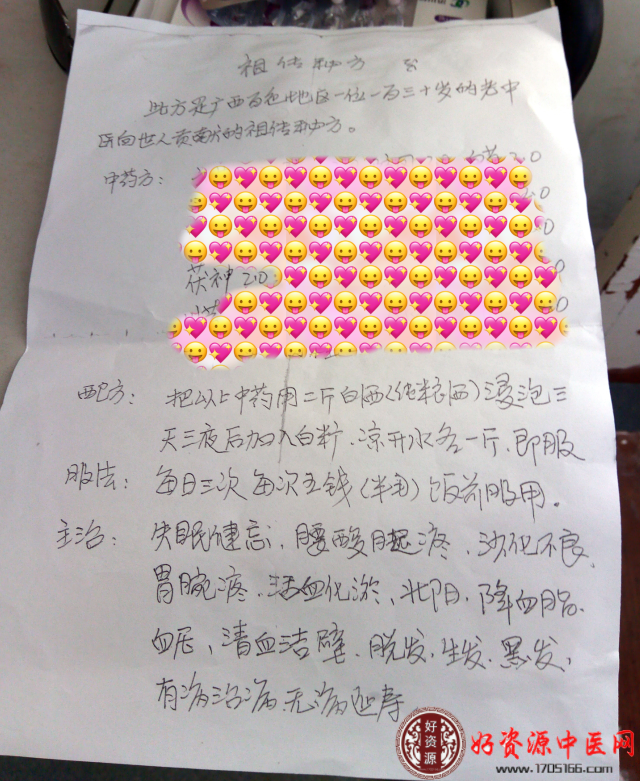 祖传秘方
此方是广西百色地区一位一百三十岁的老中
医向世人贡献的祖传秘方。
中药方： 20
茯神20
配方：把以上中药用二斤白酒(纯粮酒)浸泡三
天三夜后加入白糖、凉开水各一斤，即服
服法：每日三次 每次五钱(半两)饭前服用。
主治：失眠健忘，腰酸腿疼、消化不良、
胃脘疼、活血化淤、壮阳、降血脂、
血压、清血洁壁、脱发、生发、黑发、
有病治病、无病延寿
好资源
好资源中医网
www.1705166.com